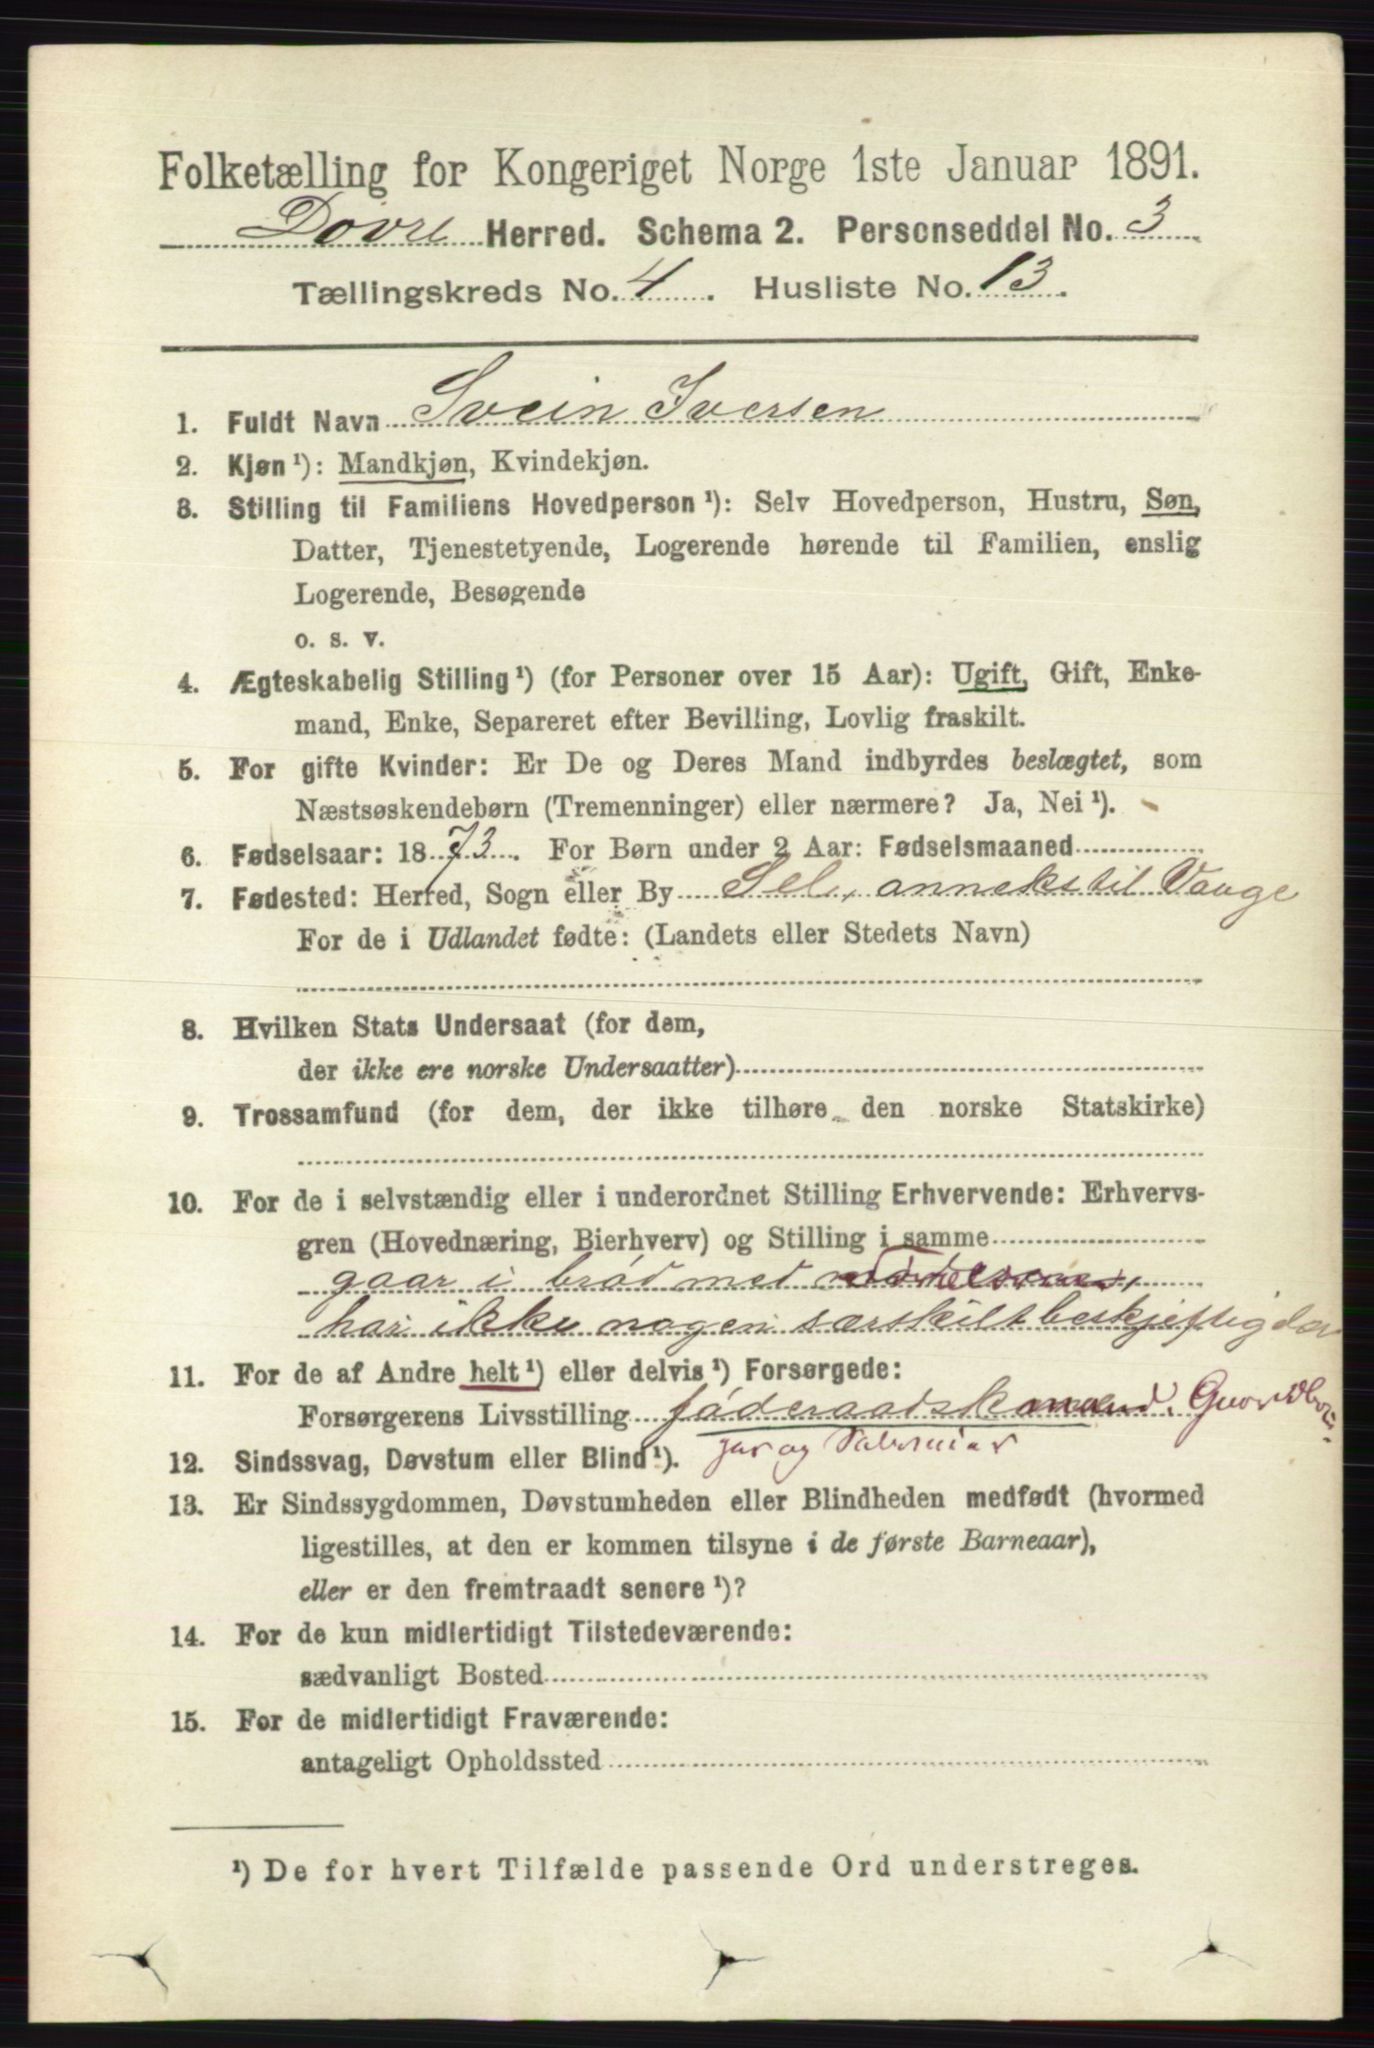 Folketælling for Kongeriget Norge 1ste Januar 1891.
Dovre Herred. Schema 2. Personseddel No. 3
Tællingskreds No. 4. Husliste No. 13.
1. Fuldt Navn Svein Iversen
2. Kjøn¹): Mandkjøn, Kvindekjøn.
3. Stilling til Familiens Hovedperson¹): Selv Hovedperson, Hustru, Søn,
Datter, Tjenestetyende, Logerende hørende til Familien, enslig
Logerende, Besøgende
o. s. v.
4. Ægteskabelig Stilling¹) (for Personer over 15 Aar): Ugift, Gift, Enke-
mand, Enke, Separeret efter Bevilling, Lovlig fraskilt.
5. For gifte Kvinder: Er De og Deres Mand indbyrdes beslægtet, som
Næstsøskendebørn (Tremenninger) eller nærmere? Ja, Nei¹).
6. Fødselsaar: 1873. For Børn under 2 Aar: Fødselsmaaned
7. Fødested: Herred, Sogn eller By Sel, anneks til Vaage
For de i Udlandet fødte: (Landets eller Stedets Navn)
8. Hvilken Stats Undersaat (for dem,
der ikke ere norske Undersaatter)
9. Trossamfund (for dem, der ikke tilhøre den norske Statskirke)
10. For de i selvstændig eller i underordnet Stilling Erhvervende: Erhvervs-
gren (Hovednæring, Bierhverv) og Stilling i samme
gaar i brød med
har ikke nogen særskilt beskjeftigelse
11. For de af Andre helt¹) eller delvis¹) Forsørgede:
Forsørgerens Livsstilling föderaadsmand. Gaardbru-
ger og
12. Sindssvag, Døvstum eller Blind¹).
13. Er Sindssygdommen, Døvstumheden eller Blindheden medfødt (hvormed
ligestilles, at den er kommen tilsyne i de første Barneaar),
eller er den fremtraadt senere¹)?
14. For de kun midlertidigt Tilstedeværende:
sædvanligt Bosted
15. For de midlertidigt Fraværende:
antageligt Opholdssted
¹) De for hvert Tilfælde passende Ord understreges.